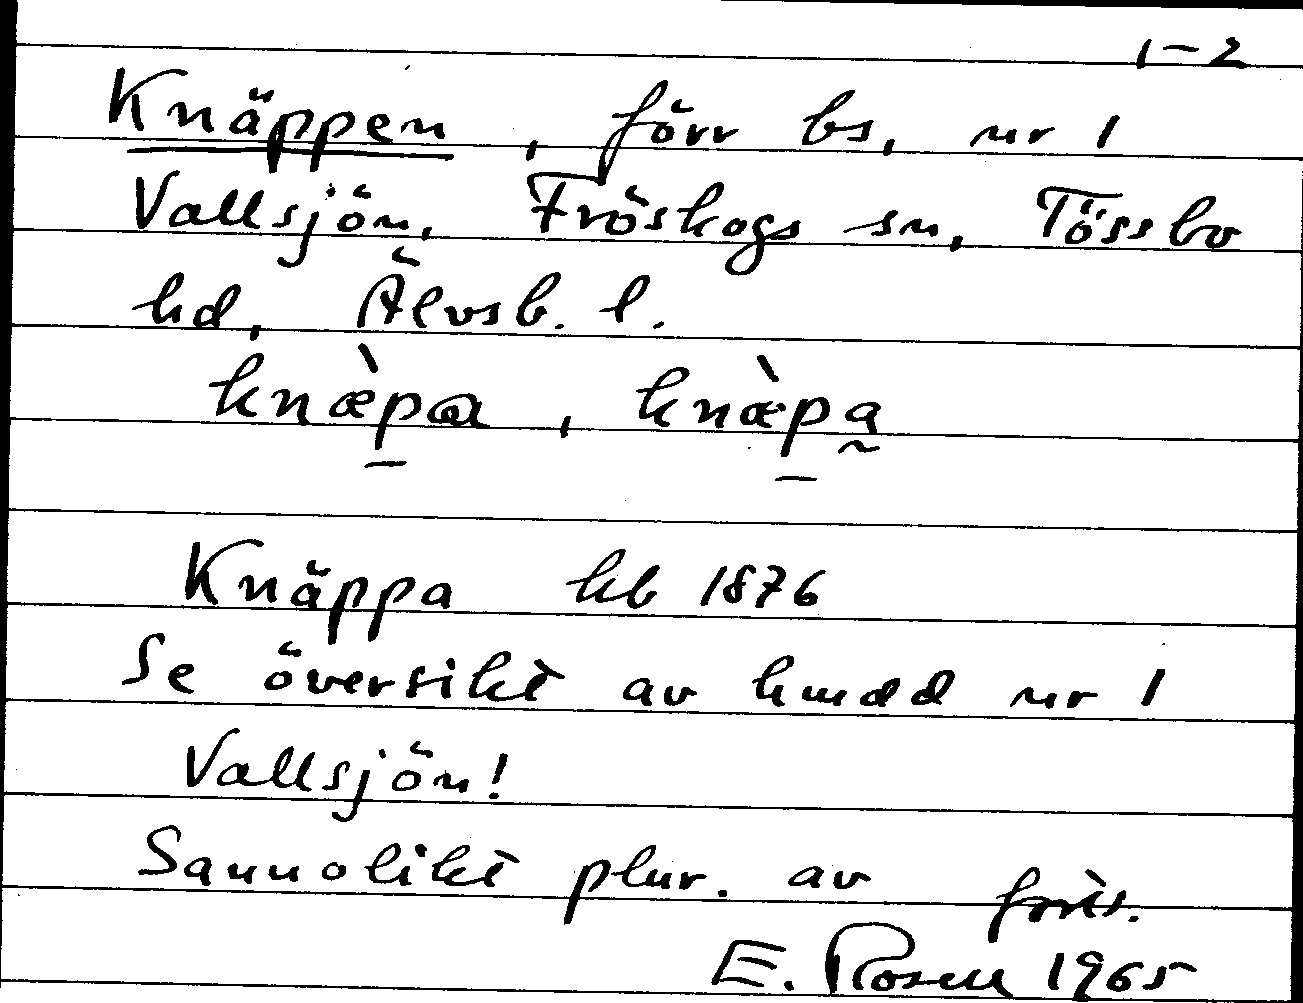 1-2
Knäppen, förr bs, nr 1
Vallsjön, Fröskogs sn, Tössbo
hd, Älvsb. l.
knæ̀pa, knæ̀pa̰
Knäppa hb 1876
Se översikt av hmdd nr 1
Vallsjön!
Sannolikt plur. av forts.
E. Rosell 1965